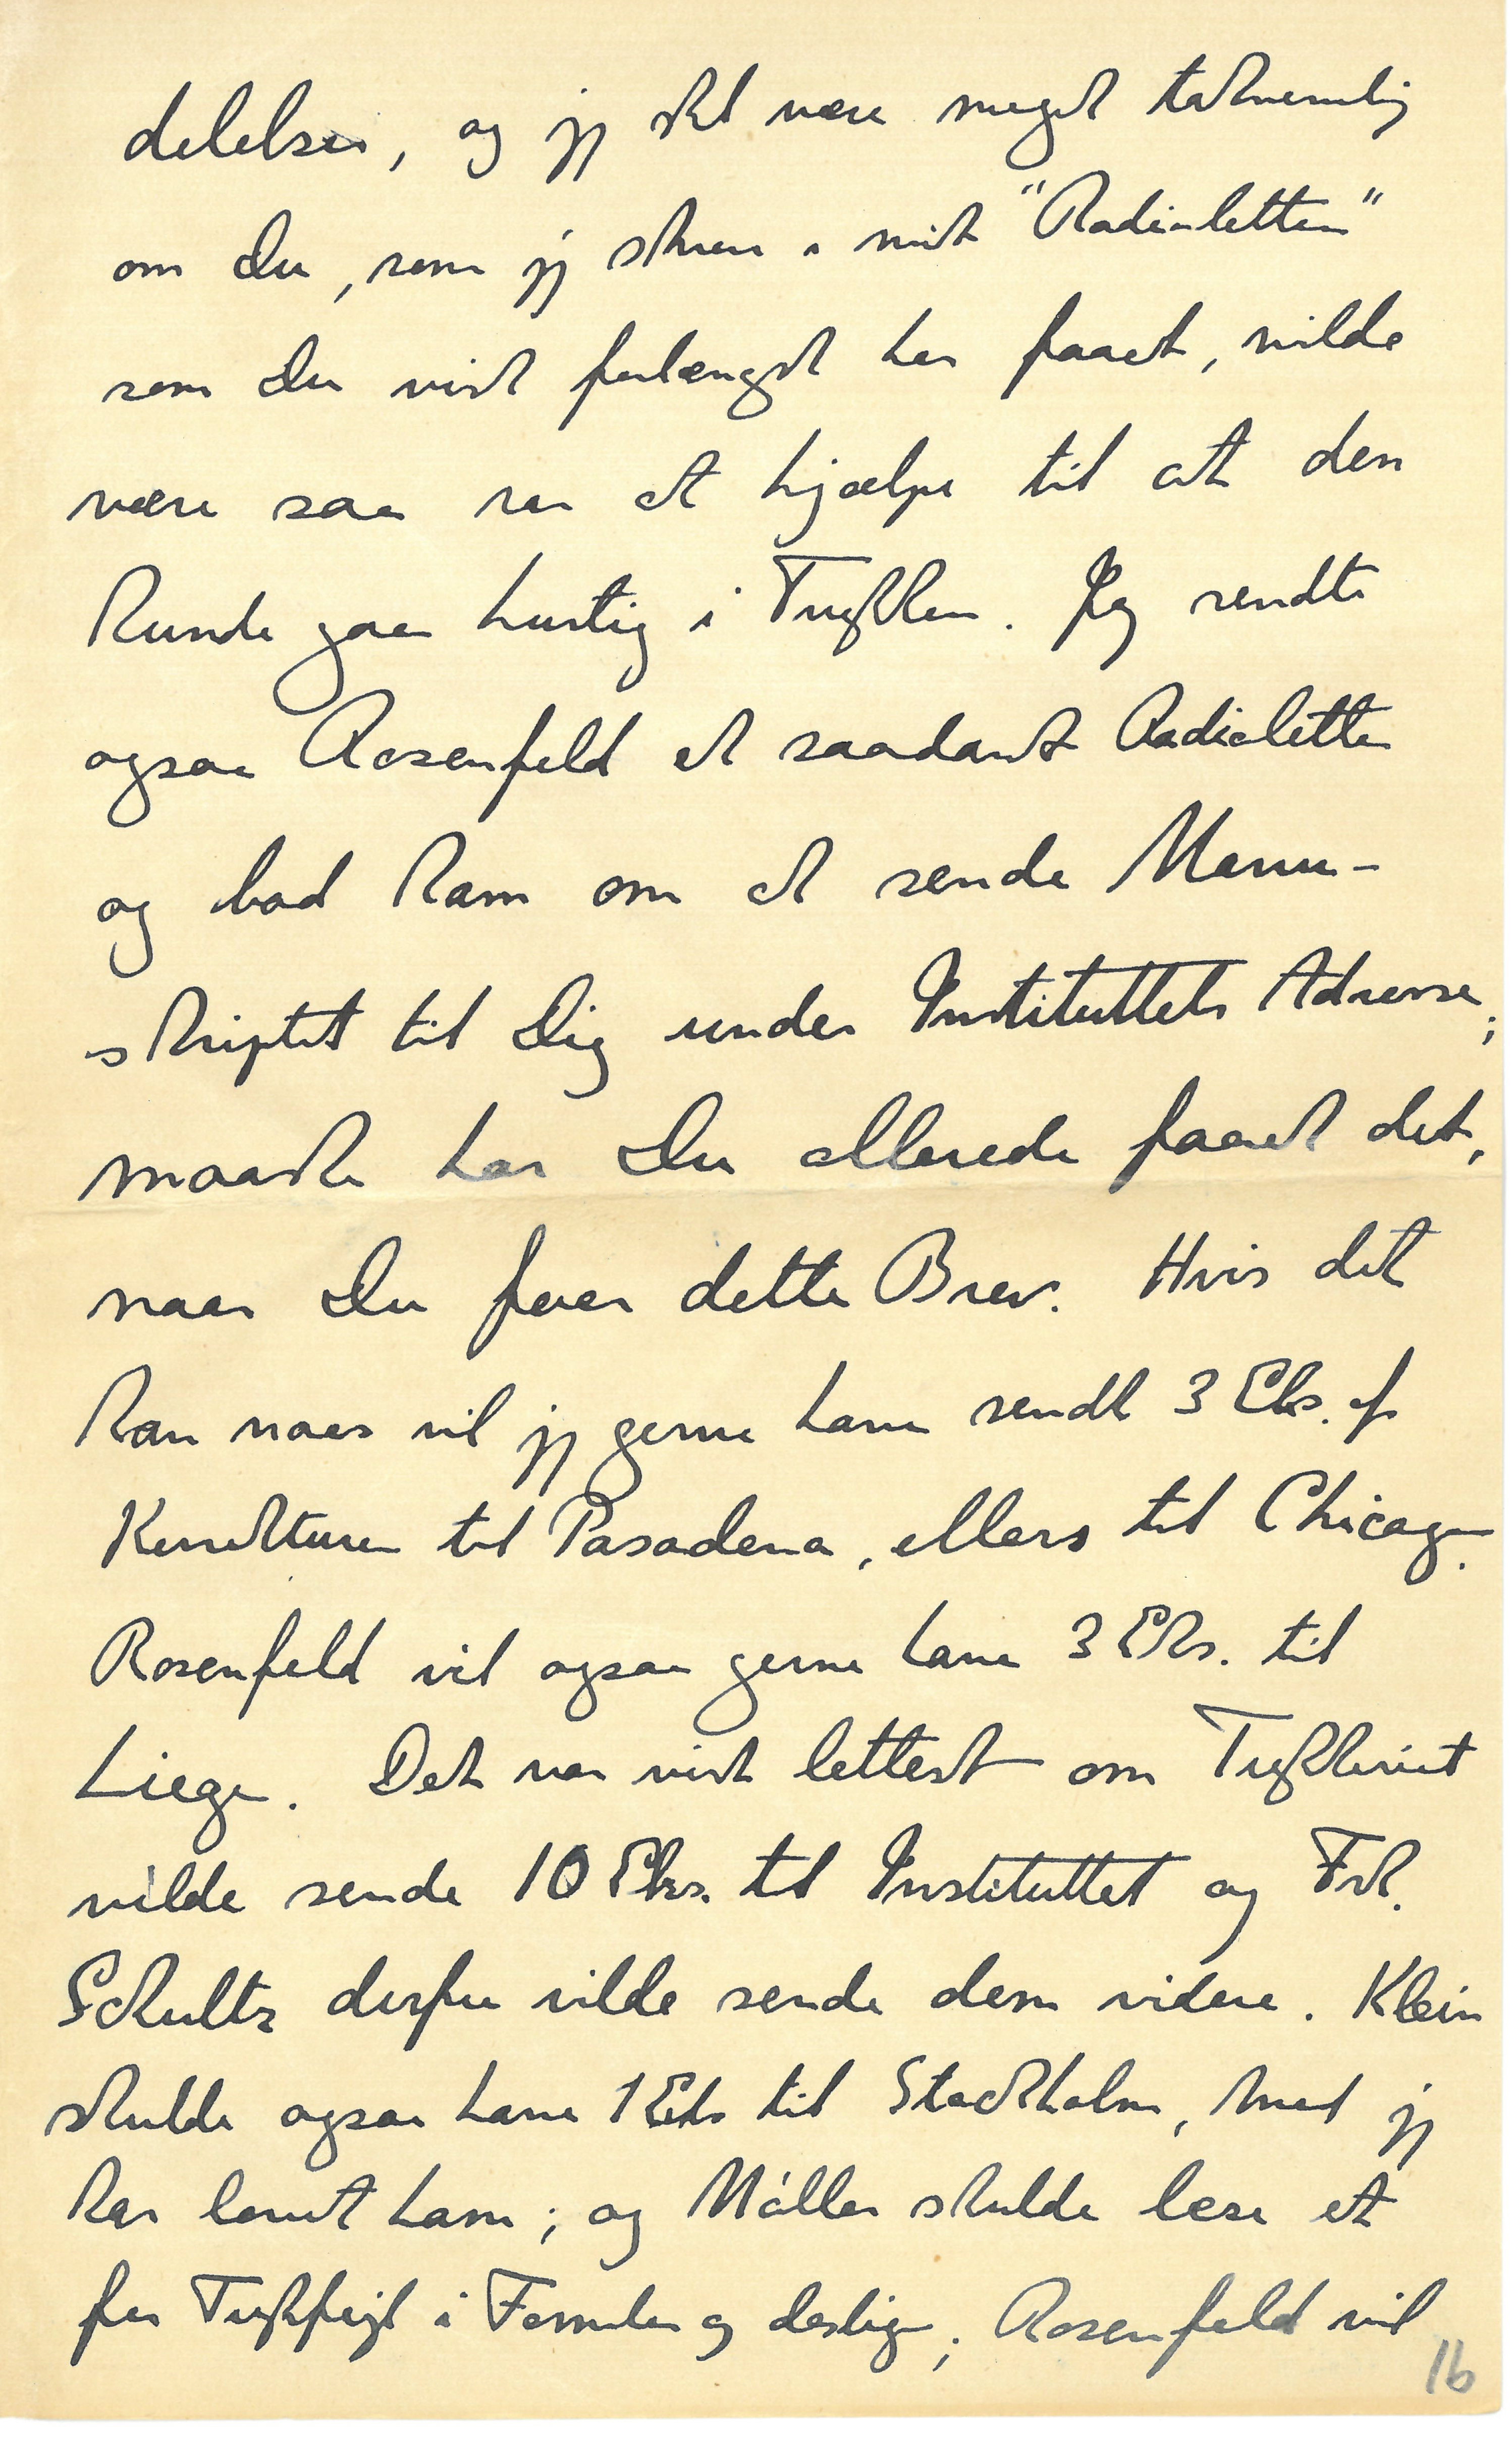 delelser, og jeg skal være meget taknemlig
om Du, som jeg skrev i mit "Radioletter"
som Du vist forlængst har faaet, vilde
være saa rar at hjælpe til at den
kunde gaa hurtig i Trykken. Jeg sendte
ogsaa Rosenfeld et saadant Radioletter
og bad ham om at sende Manu-
skriptet til Dig under Instituttets Adresse;
maaske har Du allerede faaet det,
naar Du faar dette Brev. Hvis det
kan naas vil jeg gerne have sendt 3 Eks. af
Korrekturen til Pasadena, ellers til Chicago.
Rosenfeld vil ogsaa gerne have 3 Eks. til
Liege. Det var vist lettest om Trykkeriet
vilde sende 10 Eks. til Instituttet og Frk.
Schultz derfra vilde sende dem videre. Klein
skulde ogsaa have 1 Eks til Stockholm, hvad jeg
har lovet ham; og Møller skulde læse et
for Trykfejl i Formler og deslige; Rosenfeld vil
16